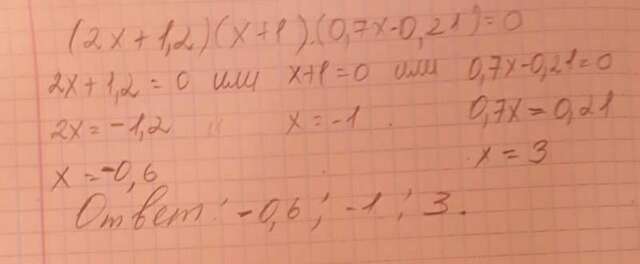 (2x+1,2)(x+1).(0,7x-0,21)=0
2x+1,2=0 или x+1=0 или 0,7x-0,21=0
2x=-1,2 x=-1. 0,7x=0,21
x=-0,6 x=3
Ответ: -0,6; -1; 3.